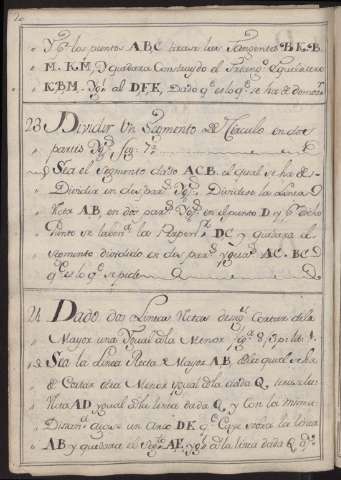 Y pr. los puntos A, B, C tirese las Tangentes B. K. B.
M. K. M, Y quedara Construydo el Triangº Equilatero
K. B. M. Ygl. al D. F. E, Dado qe. es lo qe. se ha de
23 Dividir Un Segmento De Circulo en dos
partes Ygs. fig. 7ª
Sea el Segmento dado A C B. el qual se ha de
Dividir en dos pars. Ygs. Dividese la Linea
Recta A, B, en dos pars. Ygs. en el punto D, y pr. dicho
Punto se la Perpenr. D C y quedara el
segmento dividido en dos pars. Y A C - B C
qe. es lo qe. se pide
24 Dado, dos Lineas Rectas Cortar de la
Mayor una Ygual a la Menor
Sea la Linea Recta Mayor A B, de la qual se ha
de Cortar otra Menor ygual a la dada Q, tirese la
Recta A D ygual a la linea dada Q, y con la misma
Distana. un Arco D E qe. Corte la linea
A B y quedara el Segto. A E ygl. a la linea dada Q